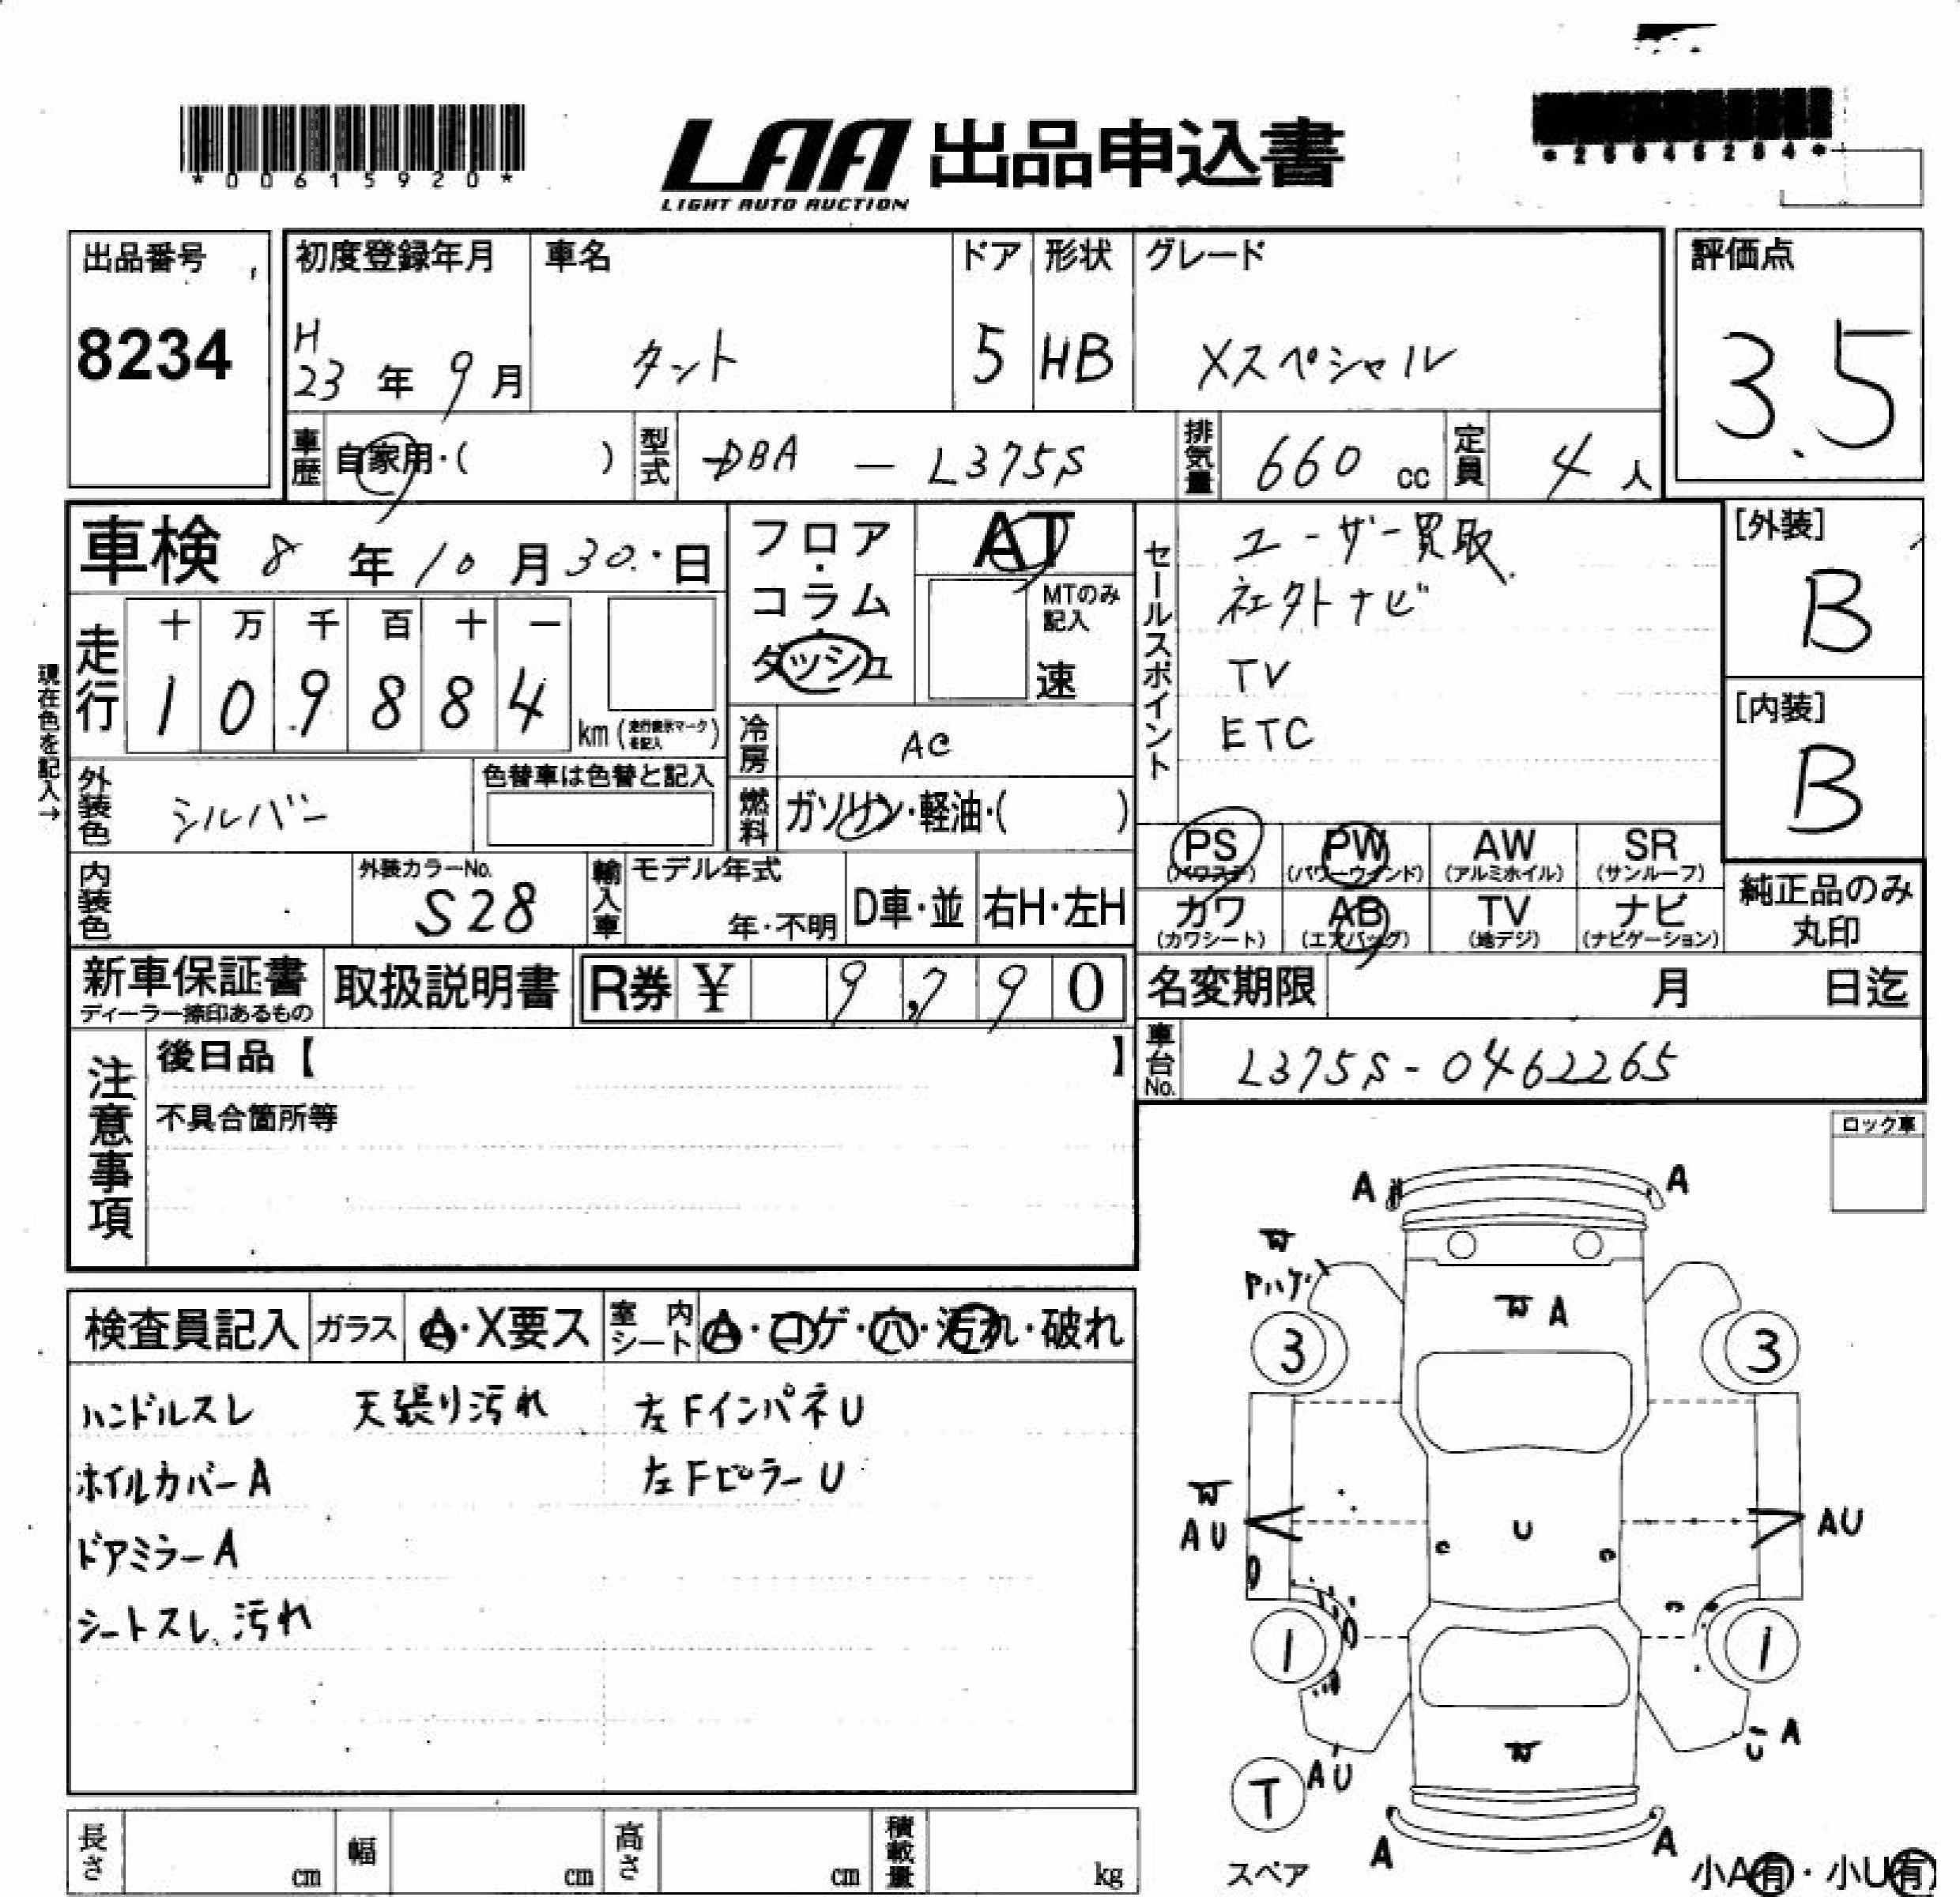 *00615920*
LAA 出品申込書
LIGHT AUTO AUCTION
*25045284*
出品番号
8234
初度登録年月
H
23年9月
車名
タント
ドア
5
形状
HB
グレード
Xスペシャル
評価点
3.5
車歴
自家用・( )
型式
DBA - L375S
排気量
660 cc
定員
4人
車検 8年10月30日
フロア・コラム・ダッシュ
AT
MTのみ記入
速
セールスポイント
ユーザー買取
社外ナビ
TV
ETC
[外装]
B
[内装]
B
現在色を記入→
走行
十 万 千 百 十 一
1 0 9 8 8 4
km
冷房
AC
外装色
シルバー
色替車は色替と記入
燃料
ガソリン・軽油・( )
PS (パワステ)
PW (パワーウィンド)
AW (アルミホイル)
SR (サンルーフ)
カワ (カワシート)
AB (エアバッグ)
TV (地デジ)
ナビ (ナビゲーション)
純正品のみ丸印
内装色
外装カラーNo.
S28
輸入車
モデル年式
年・不明
D車・並
右H・左H
新車保証書
ディーラー捺印あるもの
取扱説明書
R券 ¥ 9,790
名変期限 月 日迄
車台No.
L375S-0462265
注意事項
後日品【 】
不具合箇所等
ロック車
検査員記入
ガラス
A・X要ス
室内シート
A・コゲ・穴・汚れ・破れ
ハンドルスレ 天張り汚れ 左FインパネU
ホイルカバーA 左FピラーU
ドアミラーA
シートスレ、汚れ
A A
W
W A
3 3
W
AU U AU
1 1
A
U
W
T AU
A A
スペア
小A有・小U有
長さ cm
幅 cm
高さ cm
積載量 kg